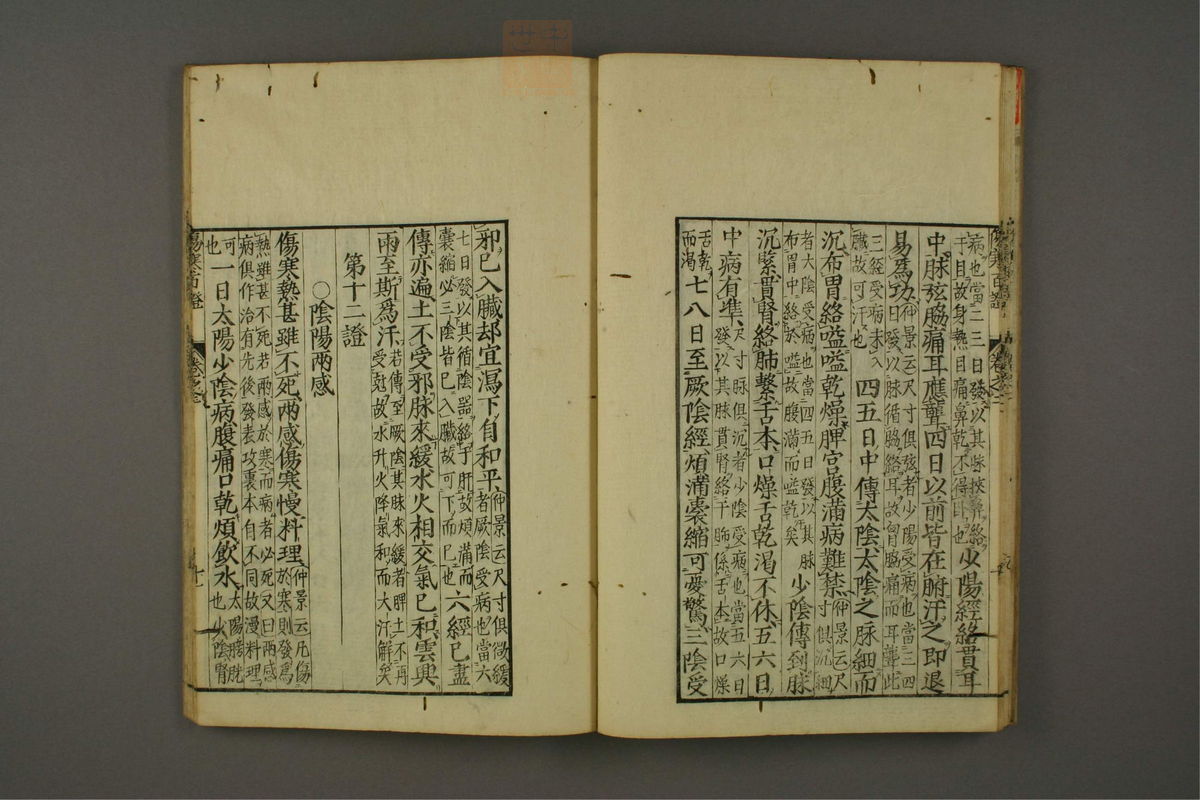 病也當二三日發以其脉挾鼻絡
于目故身熱目痛鼻乾不得卧也少陽經絡貫耳
中脉弦脇痛耳應聾四日以前皆在腑汗之即退
易爲功仲景云尺寸俱弦者少陽受病也當三四
日發以脉循脇絡耳故胷脇痛而耳聾此
三經受病未入
臓故可汗也四五日中傳太陰太陰之脉細而
沉布胃絡嗌嗌乾燥脾宫腹滿病難禁仲景云尺
寸俱沉細
者太陰受病也當四五日發以其脉
布胃中絡於嗌故腹滿而嗌乾矣少陰傳到脉
沉緊貫腎絡肺繫舌本口燥舌乾渴不休五六日
中病有準尺寸脉俱沉者少陰受病也當五六日
發以其脉貫腎絡于肺係舌本故口燥
舌乾
而渴七八日至厥陰經煩滿嚢縮可憂驚三陰受
傷寒百證
邪已入臓却宜瀉下自和平仲景云尺寸俱微緩
者厥陰受病也當六
七日發以其循陰器絡于肝故煩滿而
嚢縮必三陰皆已入臓故可下而已也六經已盡
傳亦遍土不受邪脉來緩水火相交氣已和雲興
雨至斯爲汗若傳至厥陰其脉來緩者脾土不再
受尅故水升火降氣和而大汗解矣
第十二證
○陰陽兩感
傷寒熱甚雖不死兩感傷寒慢料理仲景云凡傷
於寒則發爲
熱雖甚不死若兩感於寒而病者必死又曰兩感
病俱作治有先後發表攻裏本自不同故漫料理
可
也一日太陽少陰病腹痛口乾煩飲水太陽膀胱
也少陰腎
傷寒百證